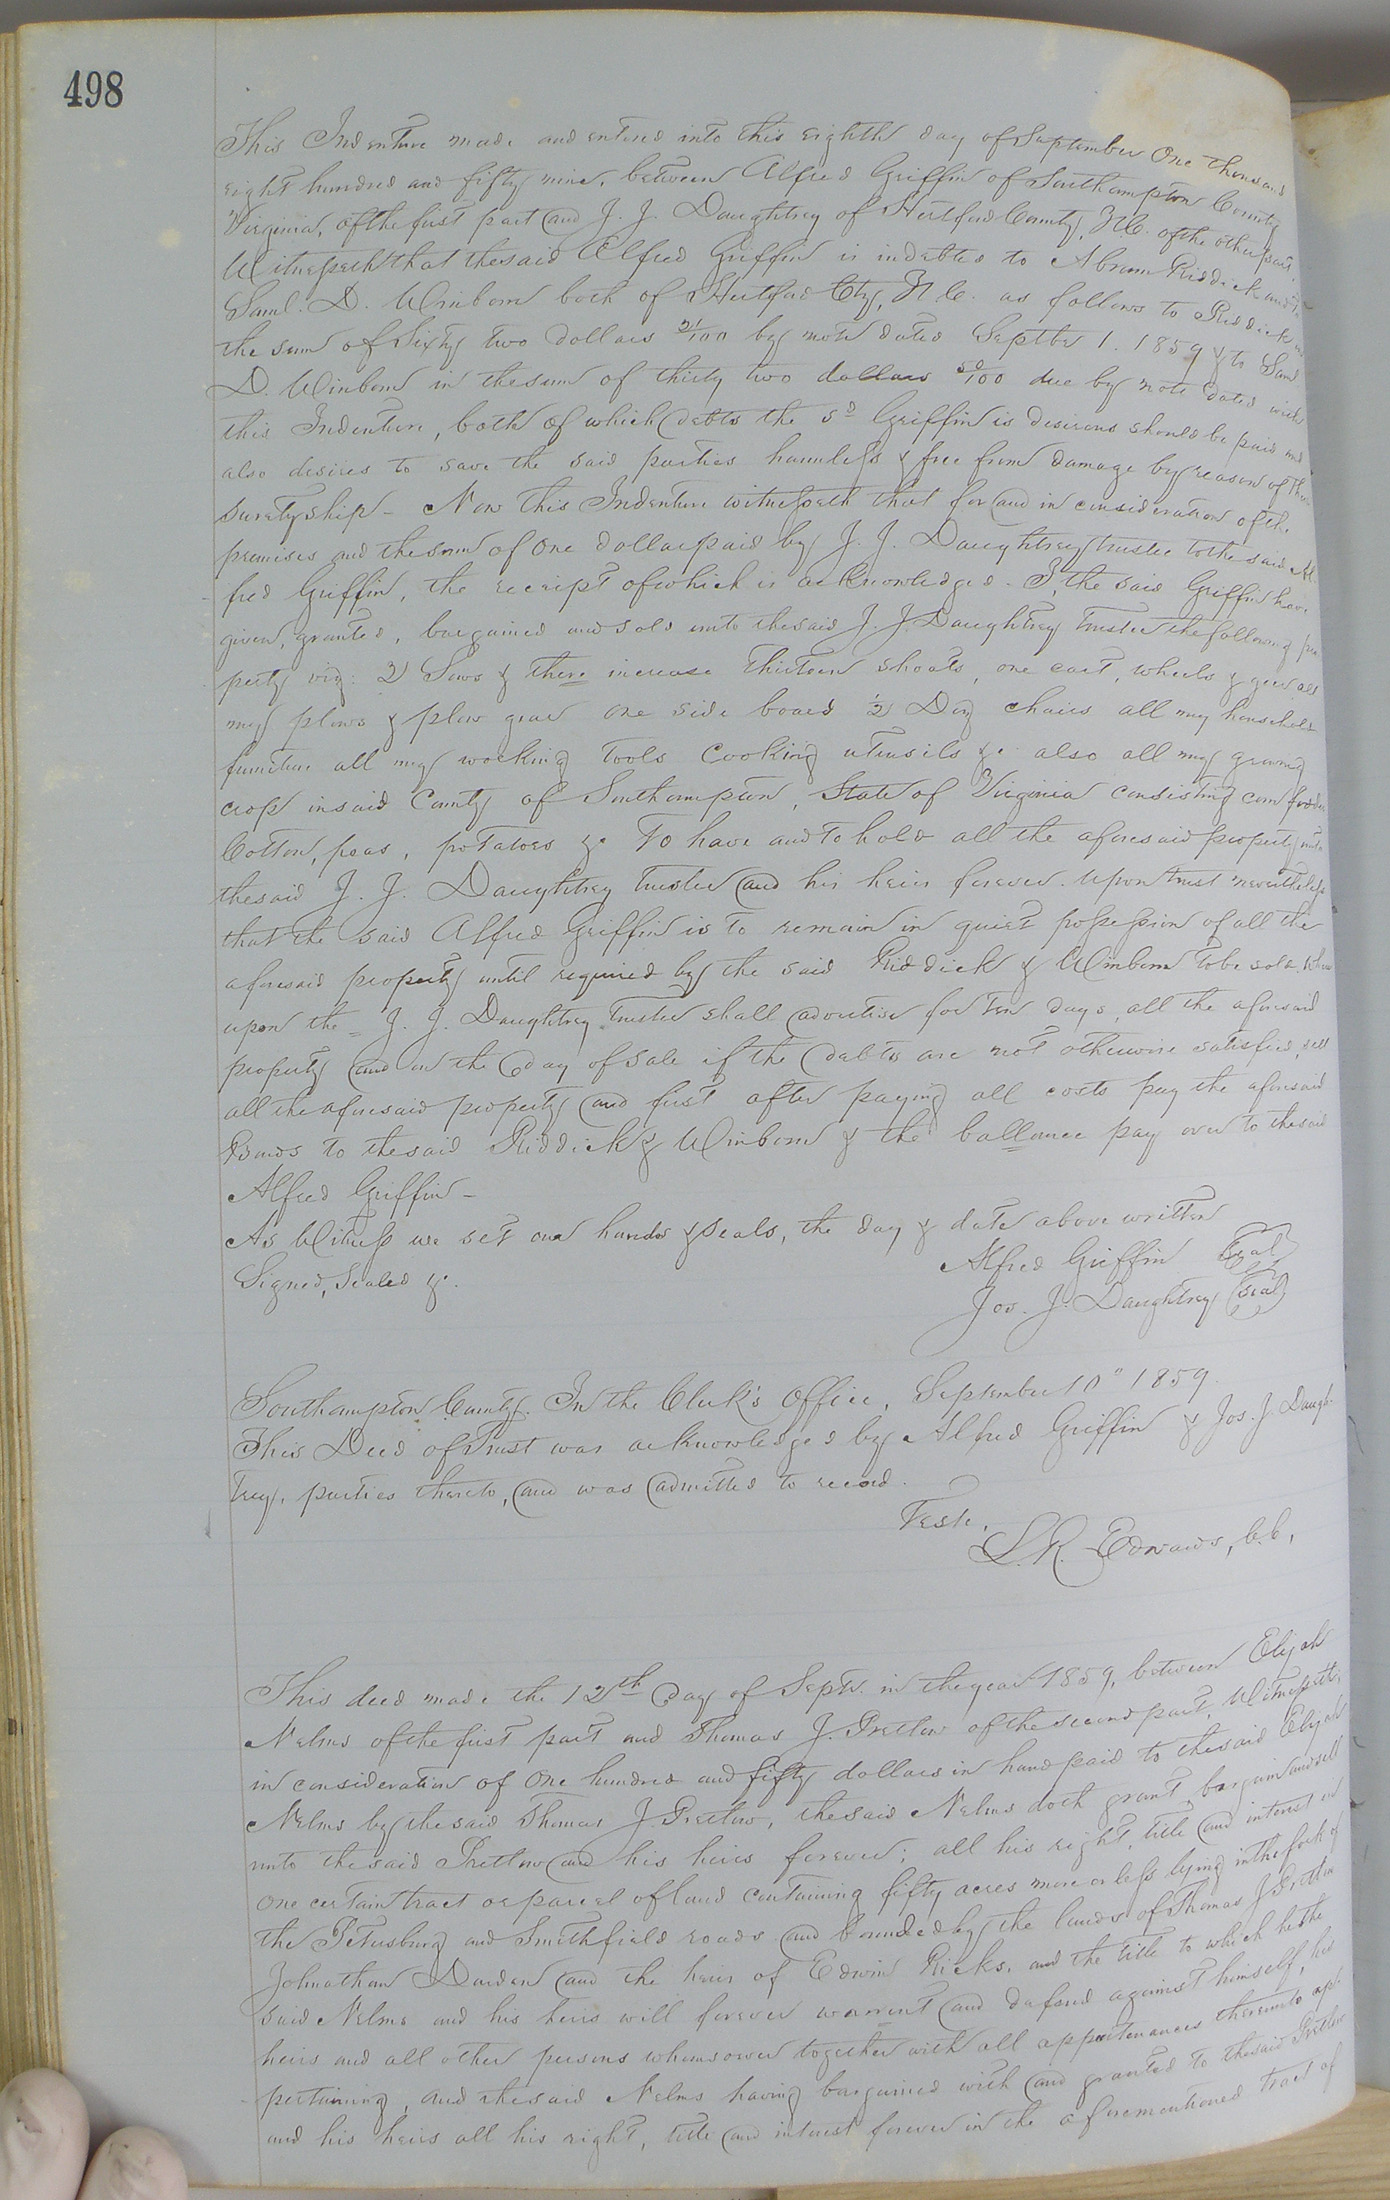 498
This Indenture made and entered into this eighth day of September One thousand
eight hundred and fifty nine, between Alfred Griffin of Southampton County
Virginia, of the first part and J. J. Daughtrey of Hertford County, N.C. of the other part.
Witnesseth that the said Alfred Griffin is indebted to Abram Riddick and
Saml. D. Winborn both of Hertford Cty, N.C. as follows to Riddick in
the sum of Sixty two dollars 21/100 by note dated Septber 1. 1859 & to Saml
D. Winborn in the sum of thirty two dollars 50/100 due by note dated with
this Indenture, both of which debts the sd Griffin is desirous should be paid and
also desires to save the said parties harmless & free from damage by reason of their
suretyship - Now this Indenture witnesseth that for and in consideration of the
premises and the sum of One dollar paid by J. J. Daughtrey trustee to the said Al-
fred Griffin, the receipt of which is acknowledged - I, the said Griffin have
given, granted, bargained and sold unto the said J. J. Daughtrey Trustee the following pro
perty viz: 2 Sows & there increase Thirteen shoats, one cart, wheels & gear all
my plows & plow gear One side board 1/2 Doz chairs all my household
furniture all my working Tools Cooking utensils &c also all my growing
crop in said County of Southampton, State of Virginia consisting corn fodder
Cotton, peas, potatoes &c To have and to hold all the aforesaid property unto
the said J. J. Daughtrey trustee and his heirs forever. Upon trust nevertheless
that the said Alfred Griffin is to remain in quiet possession of all the
aforesaid property until required by the said Riddick & Winborn to be sold, Where
upon the J. J. Daughtrey Trustee shall advertise for ten days, all the aforesaid
property and on the day of sale if the debts are not otherwise satisfied, sell
all the aforesaid property and first after paying all costs pay the aforesaid
Bonds to the said Riddick & Winborn & the ballance pay over to the said
Alfred Griffin -
As Witness we set our hands & seals, the day & date above written
Alfred Griffin Seal
Signed, Sealed &c.
Jos. J. Daughtrey Seal
Southampton County. In the Clerk's Office, September 10" 1859.
This Deed of Trust was acknowledged by Alfred Griffin & Jos. J. Daugh-
trey, parties thereto, and was admitted to record.
Teste,
L. R. Edwards, C.C.
This deed made the 12th day of Septr. in the year 1859, between Elijah
Nelms of the first part and Thomas J. Pretlow of the second part, Witnesseth,
in consideration of One hundred and fifty dollars in hand paid to the said Elijah
Nelms by the said Thomas J. Pretlow, the said Nelms doth grant, bargain and sell
unto the said Pretlow and his heirs forever; all his right, title and interest in
One certain tract or parcel of land containing fifty acres more or less lying in the fork of
the Petersburg and Smithfield roads and bounded by the lands of Thomas J. Pretlow
Johnathan Darden and the heirs of Edwin Ricks, and the title to which he the
said Nelms and his heirs will forever warrent and defend against himself, his
heirs and all other persons whomsoever together with all appertenances thereunto ap-
pertaining, and the said Nelms having bargained with and granted to the said Pretlow
and his heirs all his right, title and interest forever in the aforementioned tract of